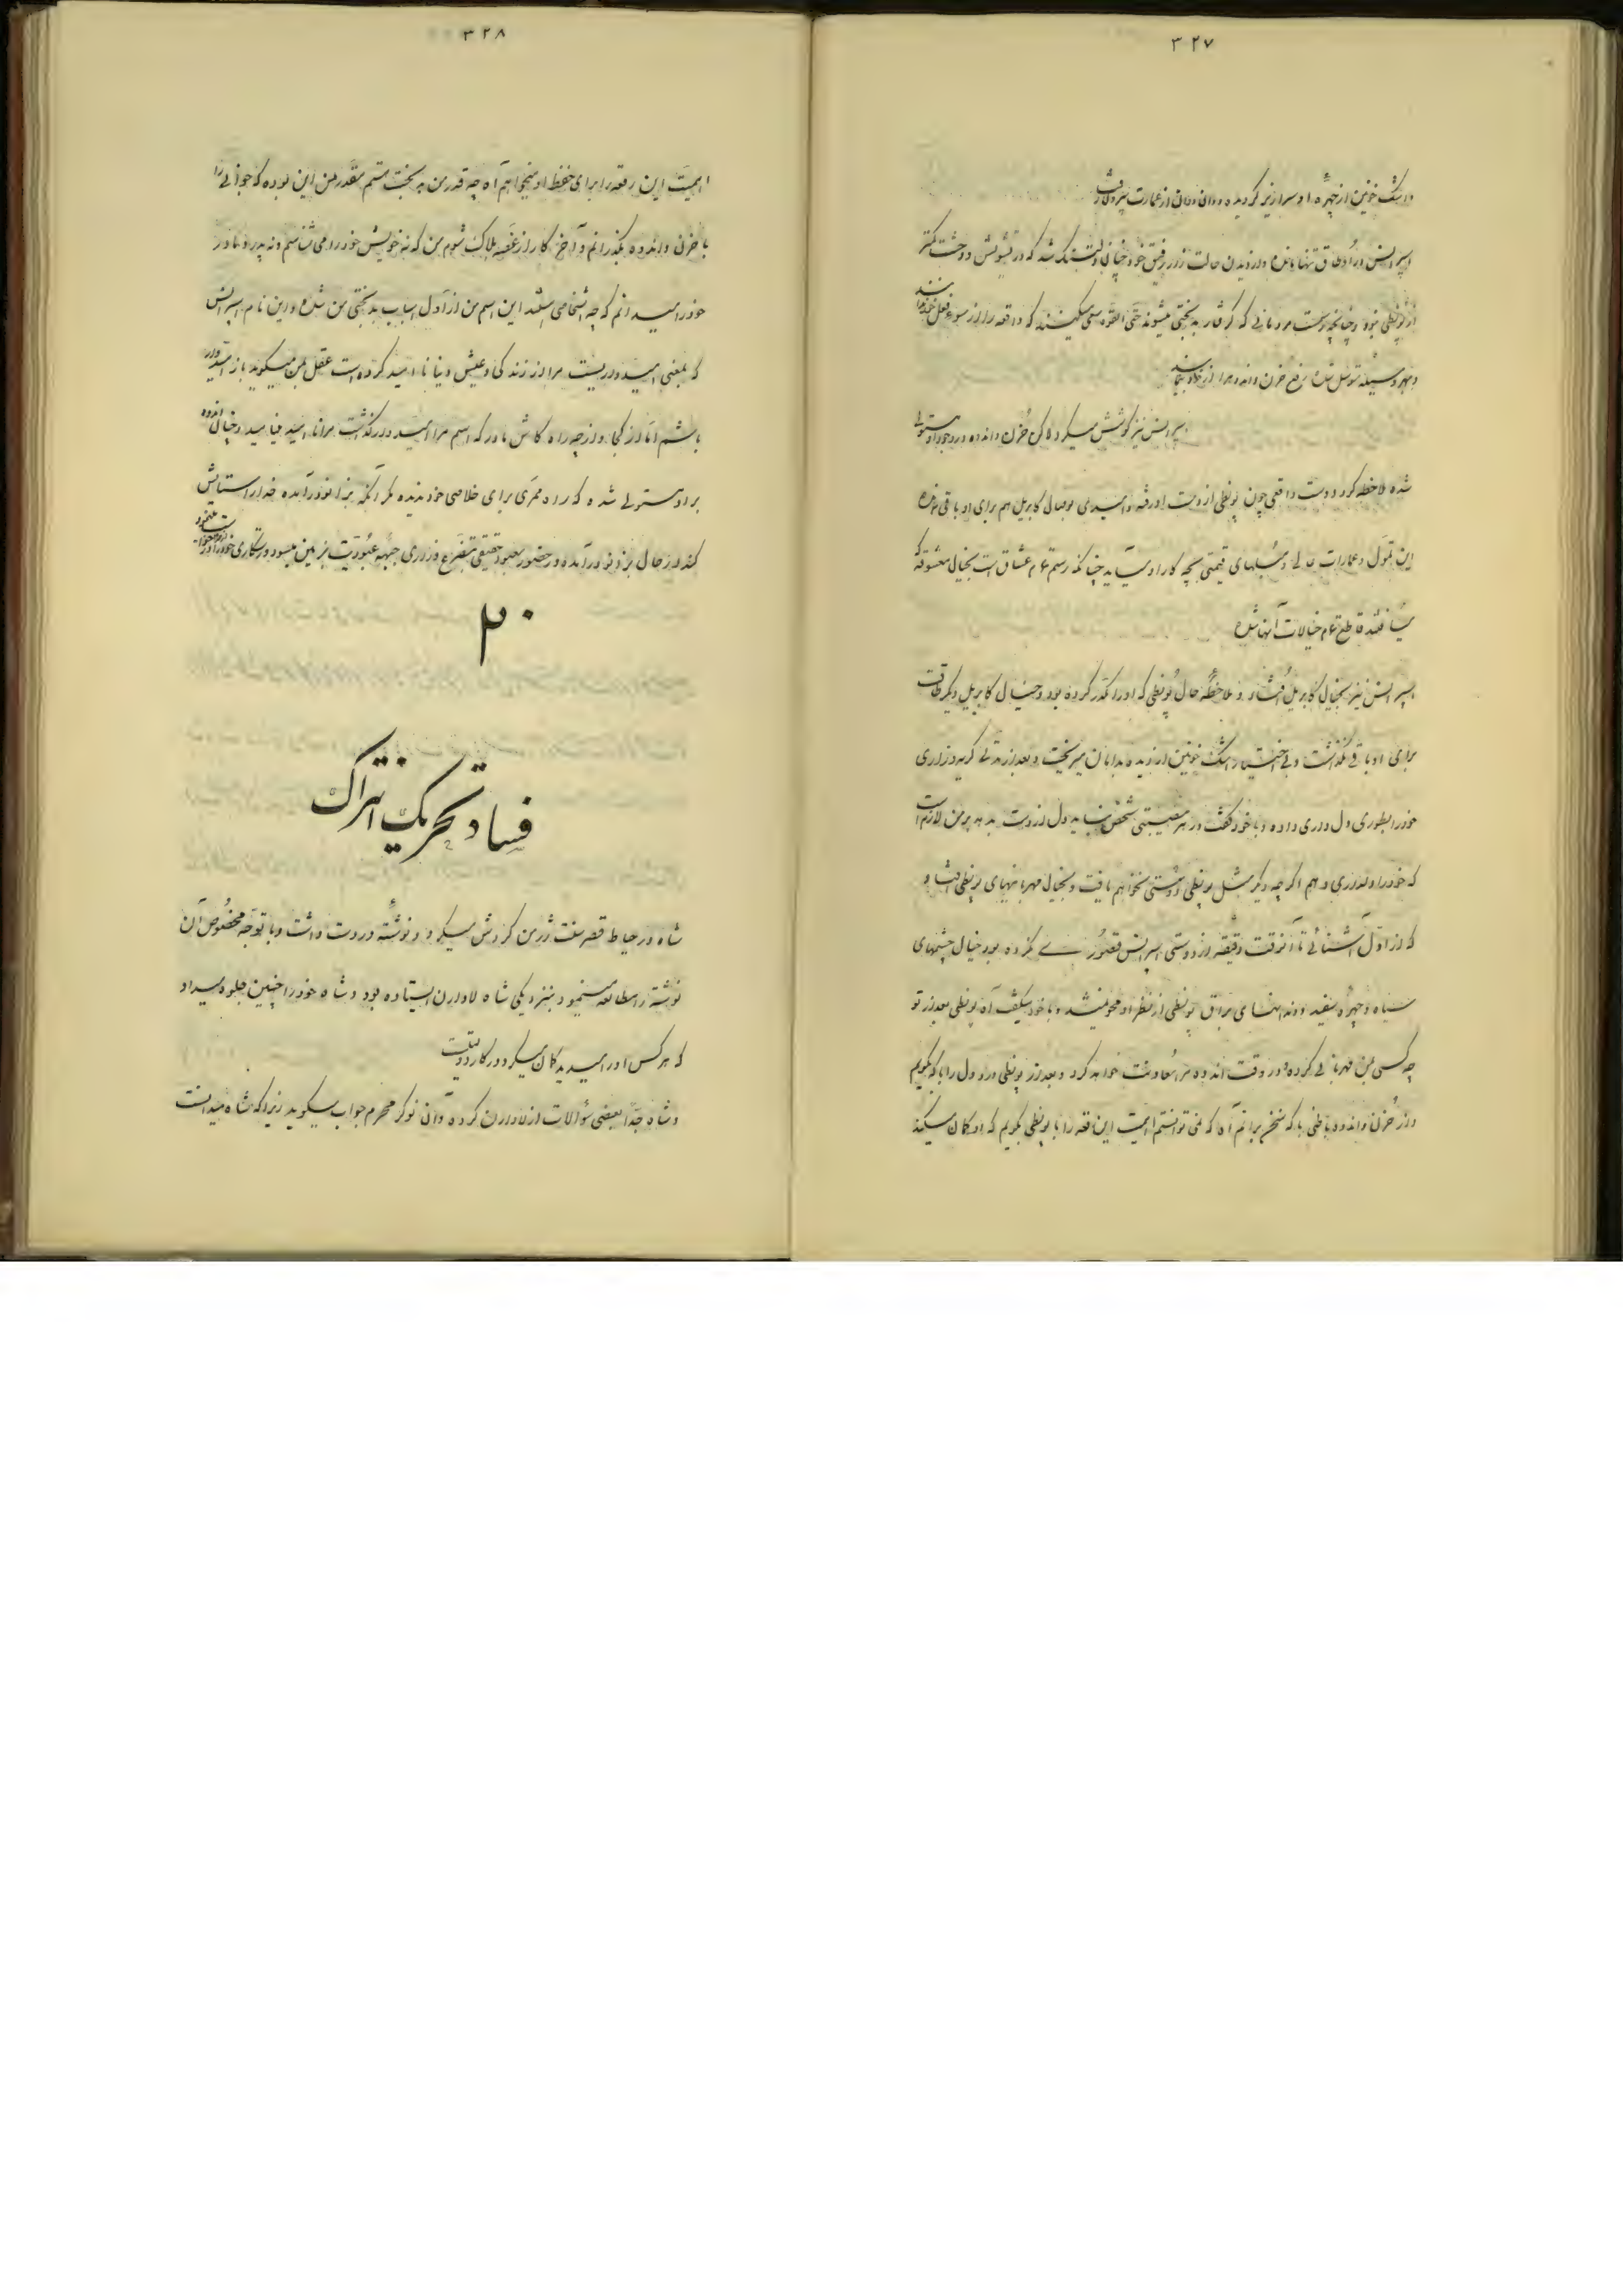 ۳۲۷
و اشک خونین از چهرۀ او سرازیر گردیده دوان دوان از عمارت بیرون رفت
اسپرانس در اوطاق تنها مانده و از دیدن حالت زار رفیق خود چنان دلتنگ شد که در تشویش و وحشت کمتر
از پونطی نبود و چنانچه رسم مردمانی که گرفتار بدبختی میشوند حتی القوه سعی میکنند که واقعه را از سوء فعل خود ندانند
و بهر وسیله متوسل شده رفع حزن و اندوه را از خود نمایند
اسپرانس نیز کوشش میکرد لاکن حزن و اندوه در وجود او مستولی
شده ملاحظه کرد دوست واقعی چون پونطی از دست او رفته و امیدی بوصال کابریل هم برای او باقی نمانده
این تمول و عمارات عالی و مبلهای قیمتی بچه کار او میآید چنانکه رسم تمام عشاق است بخیال معشوقه که
میافتند قاطع تمام خیالات آنها شده
اسپرانس نیز بخیال کابریل افتاد و ملاحظۀ حال پونطی که او را مکدر کرده بود و خیال کابریل دیگر طاقت
برای او باقی نگذاشت و بی اختیار اشک خونین از دیده بدامان میریخت و بعد از مدتی گریه و زاری
خود را بطوری دل داری داده و با خود گفت در هر مصیبتی شخص نباید دل از دست بدهد بر من لازم است
که خود را دلداری دهم اگر چه دیگر مثل پونطی دوستی نخواهم یافت و بخیال مهربانیهای پونطی افتاد
که از اول آشنائی تا آنوقت دقیقۀ از دوستی اسپرانس قصوری نکرده بود خیال چشمهای
سیاه و چهرۀ سفید و دندانهای براق پونطی از نظر او محو نمیشد و با خود میگفت آه پونطی بعد از تو
چه کسی بمن مهربانی کرده و در وقت اندوه مرا معاونت خواهد کرد و بعد از پونطی درد دل را با که بگویم
و از حزن و اندوه باطنی با که سخن برانم آه که نمی توانستم اهمیت این رقعه را با پونطی بگویم که او گمان میکند
۳۲۸
اهمیت این رقعه را برای حفظ او میخواهم آه چه قدر من بدبخت هستم مقدر من این بوده که جوانی را
با حزن و اندوه بگذرانم و آخر کار از غصه هلاک شوم من که نه خویش خود را می شناسم و نه پدر و مادر
خود را میدانم که چه اشخاصی هستند این اسم من از اول اسباب بدبختی من شده و این نام اسپرانس
که بمعنی امیدواریست مرا از زندگی و عیش دنیا نا امید کرده است عقل بمن میگوید باز امیدوار
باشم اما از کجا و از چه راه کاش مادر که اسم مرا امیدوار گذاشت مرا نا امید مینامید و خیال اندوه
بر او مستولی شده که راه مفری برای خلاصی خود ندیده مگر آنکه بزانو درآمده خدا را ستایش
کند در حال بزانو درآمده و در حضور معبود حقیقی بتضرع و زاری جبهۀ عبودیت بزمین میسود و رستگاری خود را از او درخواست مینمود
۳۰
فساد و تحریک انتراک
شاه در حیاط قصر سنت ژرمن گردش میکرد و نوشتۀ در دست داشت و با توجه مخصوص آن
نوشته را مطالعه مینمود و بنزدیکی شاه لاوارن ایستاده بود و شاه خود را چنین جلوه میداد
که هر کس او را میدید گمان میکرد در کار دولت است
و شاه جدا بعضی سؤالات از لاوارن کرده و آن نوکر محرم جواب میگوید زیرا که شاه میدانست